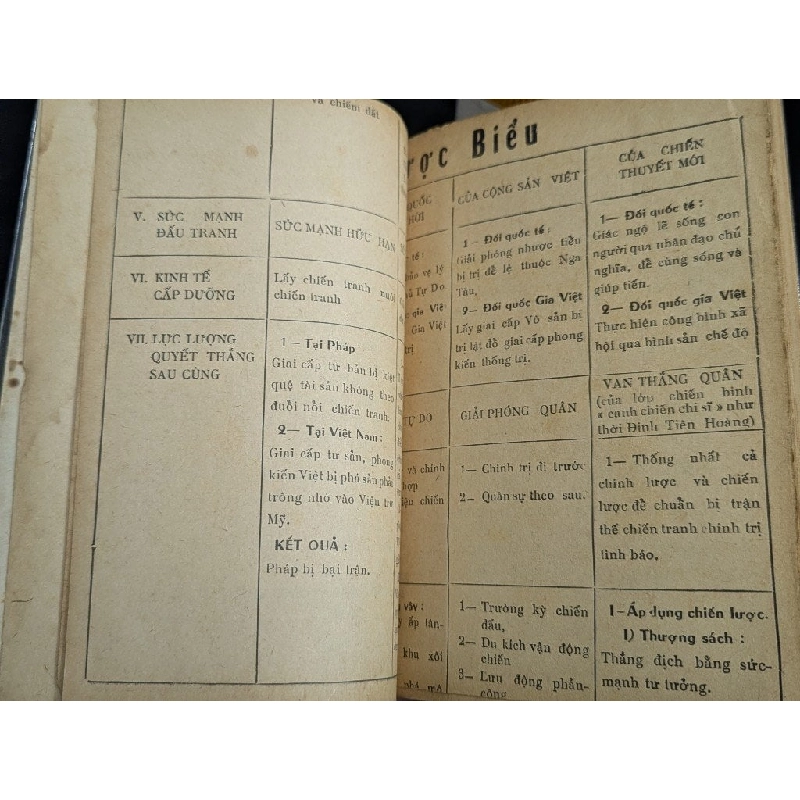 và chiếm đất
V. SỨC MẠNH
ĐẤU TRANH
SỨC MẠNH HỮU HẠN
VI. KINH TẾ
CẤP DƯỠNG
Lấy chiến tranh nuôi
chiến tranh
VII. LỰC LƯỢNG
QUYẾT THẮNG
SAU CÙNG
1 — Tại Pháp
Giai cấp tư bản bị kiệt
quệ tài sản không theo
đuổi nổi chiến tranh.
2— Tại Việt Nam:
Giai cấp tư sản, phong
kiến Việt bị phó sản phải
trông nhờ vào Viện trợ
Mỹ.
KẾT QUẢ :
Pháp bị bại trận.
ược Biểu
QUỐC
CỦA CỘNG SẢN VIỆT
CỦA CHIẾN
THUYẾT MỚI
tế :
vệ lý
Tự Do
Gia Việt
trị
1 — Đối quốc tế :
Giải phóng nhược tiểu
bị trị để lệ thuộc Nga
Tàu.
2— Đối quốc Gia Việt
Lấy giai cấp Vô sản bị
trị lật đổ giai cấp phong
kiến thống trị.
1— Đối quốc tế :
Giác ngộ lẽ sống con
người qua nhân đạo chủ
nghĩa, để cùng sống và
giúp tiến.
2— Đối quốc gia Việt
Thực hiện công bình xã
hội qua bình sản chế độ
TỰ DO
GIẢI PHÓNG QUÂN
VẠN THẮNG QUÂN
(của lớp chiến binh
« canh chiến chi sĩ » như
thời Đinh Tiên Hoàng)
và chính
hợp
chiến
1— Chính trị đi trước
2— Quân sự theo sau.
1— Thống nhất cả
chính lược và chiến
lược để chuẩn bị trận
thế chiến tranh chính trị
tình báo.
vây :
ấp tân-
khu xôi
1— Trường kỳ chiến
đấu,
2— Du kích vận động
chiến
3— Lưu động phản-
công
1—Áp dụng chiến lược.
1) Thượng sách :
Thắng địch bằng sức-
mạnh tư tưởng.